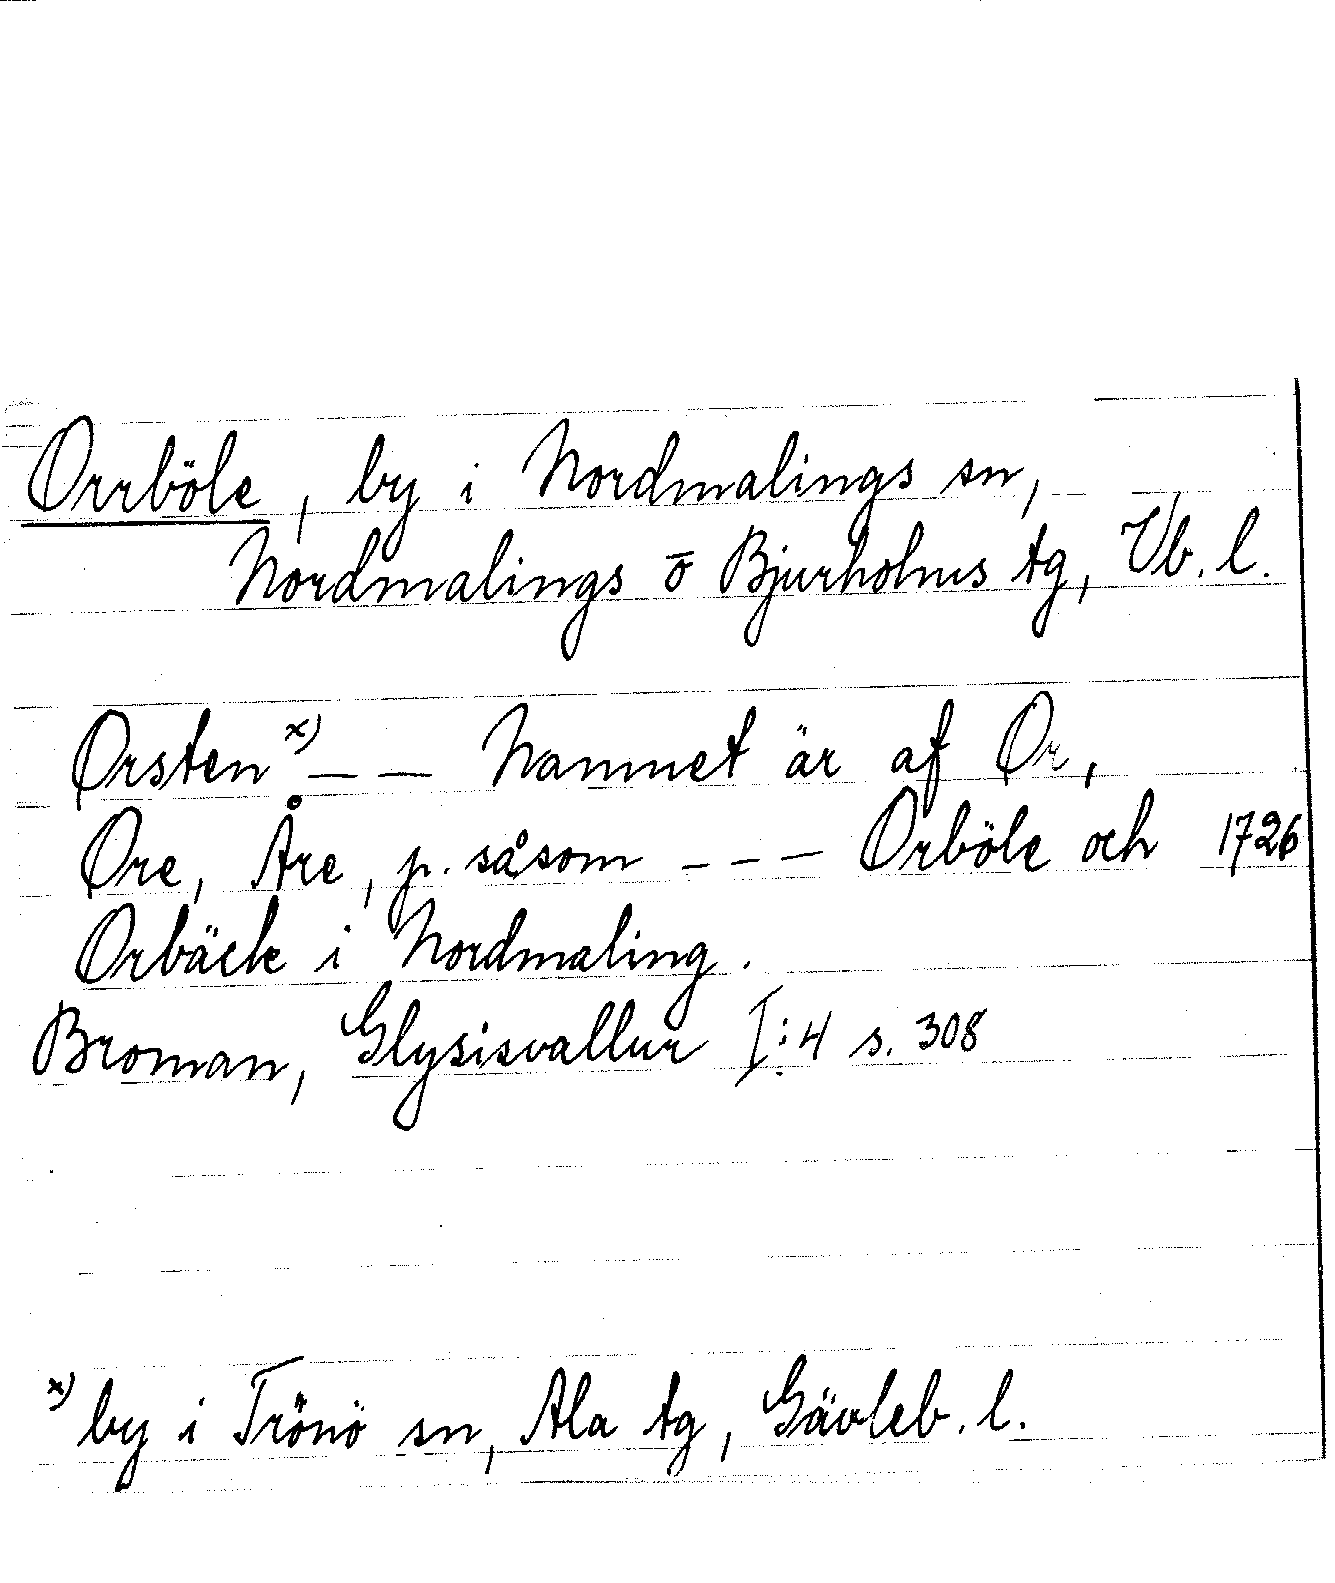 Orrböle, by i Nordmalings sn,
Nordmalings ō Bjurholms tg, Vb. l.
Orsten x) — — Namnet är af Or,
Ore, Åre, p. såsom - - - Orböle och 1726
Orbäck i Nordmaling.
Broman, Glysisvallur I:4 s. 308
x) by i Trönö sn, Ala tg, Gävleb. l.